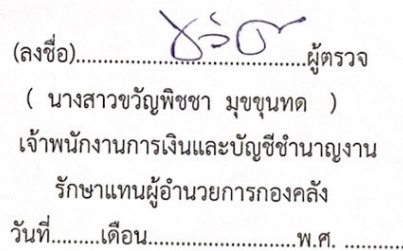 (ลงชื่อ)..........................................ผู้ตรวจ
( นางสาวขวัญพิชชา มุขขุนทด )
เจ้าพนักงานการเงินและบัญชีชำนาญงาน
รักษาแทนผู้อำนวยการกองคลัง
วันที่.........เดือน...........................พ.ศ. ............